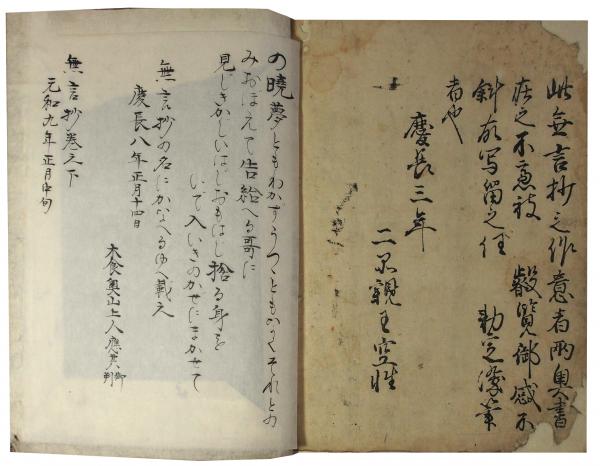 此無言抄之作意者両奥書
在之不慮被 叡覧御感不
斜故写留之任 勅定染筆
者也
慶長三年
二品親王空性
の暁夢ともわかずうつゝともなくそれとの
みおほえて告給へる哥に
見じきかじいはじおもはじ捨る身を
いて入いきのかせにまかせて
無言抄の名にかなへるゆへ載之
慶長八年正月十四日
木食興山上人應其
無言抄巻之下
元和九年正月中旬